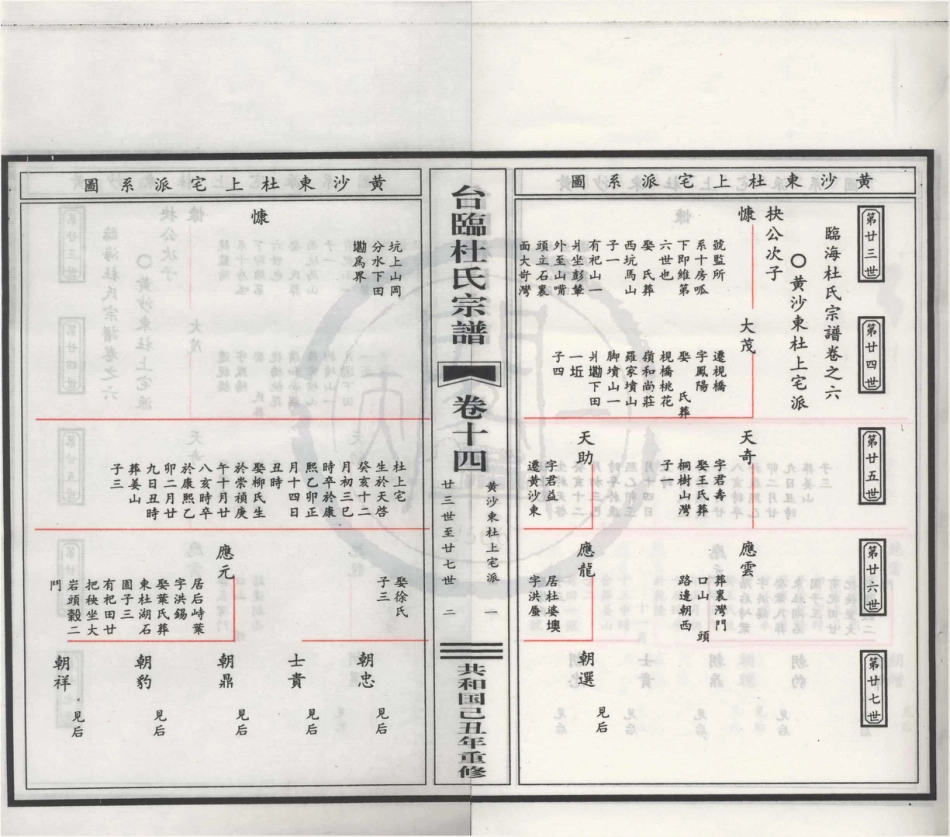 黄沙東杜上宅派系圖
第廿三世
第廿四世
第廿五世
第廿六世
第廿七世
臨海杜氏宗譜卷之六
○黄沙東杜上宅派
抉公次子
慷
號監所
系十房呱
下即維第
六世也
娶 氏葬
西坑馬山
子一
有祀山一
爿坐彭輋
外至山嘴
頭立石裏
面大奇灣
大茂
遷枧橋
字鳳陽
娶 氏葬
枧橋桃花
嶺和尚莊
羅家墳山
脚墳山一
爿墈下田
一坵
子四
天奇
字君壽
娶王氏葬
桐樹山灣
子一
天助
字君益
遷黄沙東
應雲
葬裏灣門
口山 頭
路邊朝西
應龍
居杜婆墺
字洪蜃
朝選
見后
台臨杜氏宗譜
卷十四
黄沙東杜上宅派 一
廿三世至廿七世 二
共和国己丑年重修
黄沙東杜上宅派系圖
慷
坑上山岡
分水下田
墈爲界
杜上宅
生於天啓
癸亥十二
月初三巳
時卒於康
熙乙卯正
月十四日
丑時
娶柳氏生
於崇禎庚
午十月廿
八亥時卒
於康熙乙
卯二月廿
九日丑時
葬姜山
子三
娶徐氏
子三
應元
居后峙葉
字洪錫
娶葉氏葬
東杜湖石
圓子三
有祀田廿
把秧坐大
岩頭穀二
門
朝忠
見后
士貴
見后
朝鼎
見后
朝豹
見后
朝祥
見后